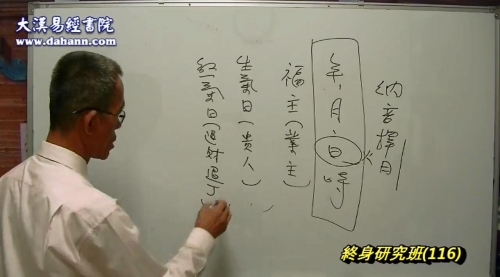 大漢易經書院
www.dahann.com
納音擇日
年月日時
福主(業主)
生氣日(貴人)
氣日(財丁
終身研究班(116)